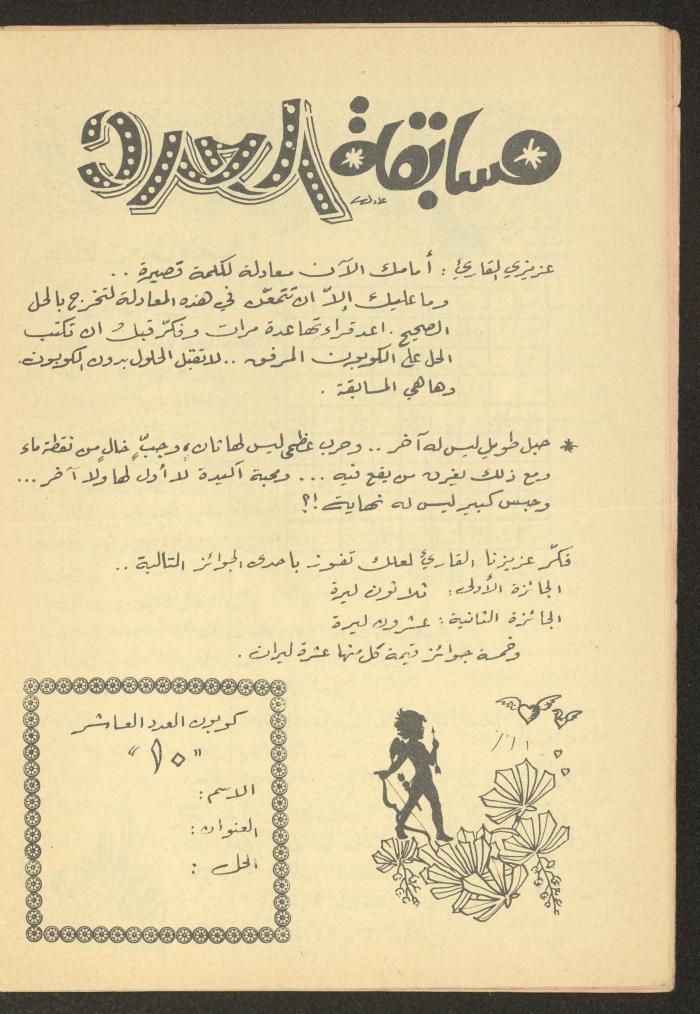 مسابقة العدد
عزيزي القارئ : أمامك الآن معادلة لكلمة قصيرة . .
وما عليك إلاّ ان تتمعّن في هذه المعادلة لتخرج بالحل
الصحيح . اعد قراءتها عدة مرات وفكّر قبل ان تكتب
الحل على الكوبون المرفق . . لا تقبل الحلول بدون الكوبون.
وها هي المسابقة .
* حبل طويل ليس له آخر . . وحرب عظمى ليس لها ثان، وجبّ خالٍ من نقطة ماء
ومع ذلك يغرق من يقع فيه ... ومحبة اكيدة لا أول لها ولا آخر ...
وحبس كبير ليس له نهاية !؟
فكّر عزيزنا القارئ لعلك تفوز باحدى الجوائز التالية . .
الجائزة الأولى : ثلاثون ليرة
الجائزة الثانية : عشرون ليرة
وخمسة جوائز قيمة كل منها عشرة ليرات .
كوبون العدد العاشر
" ١٠ "
الاسم :
العنوان :
الحل :